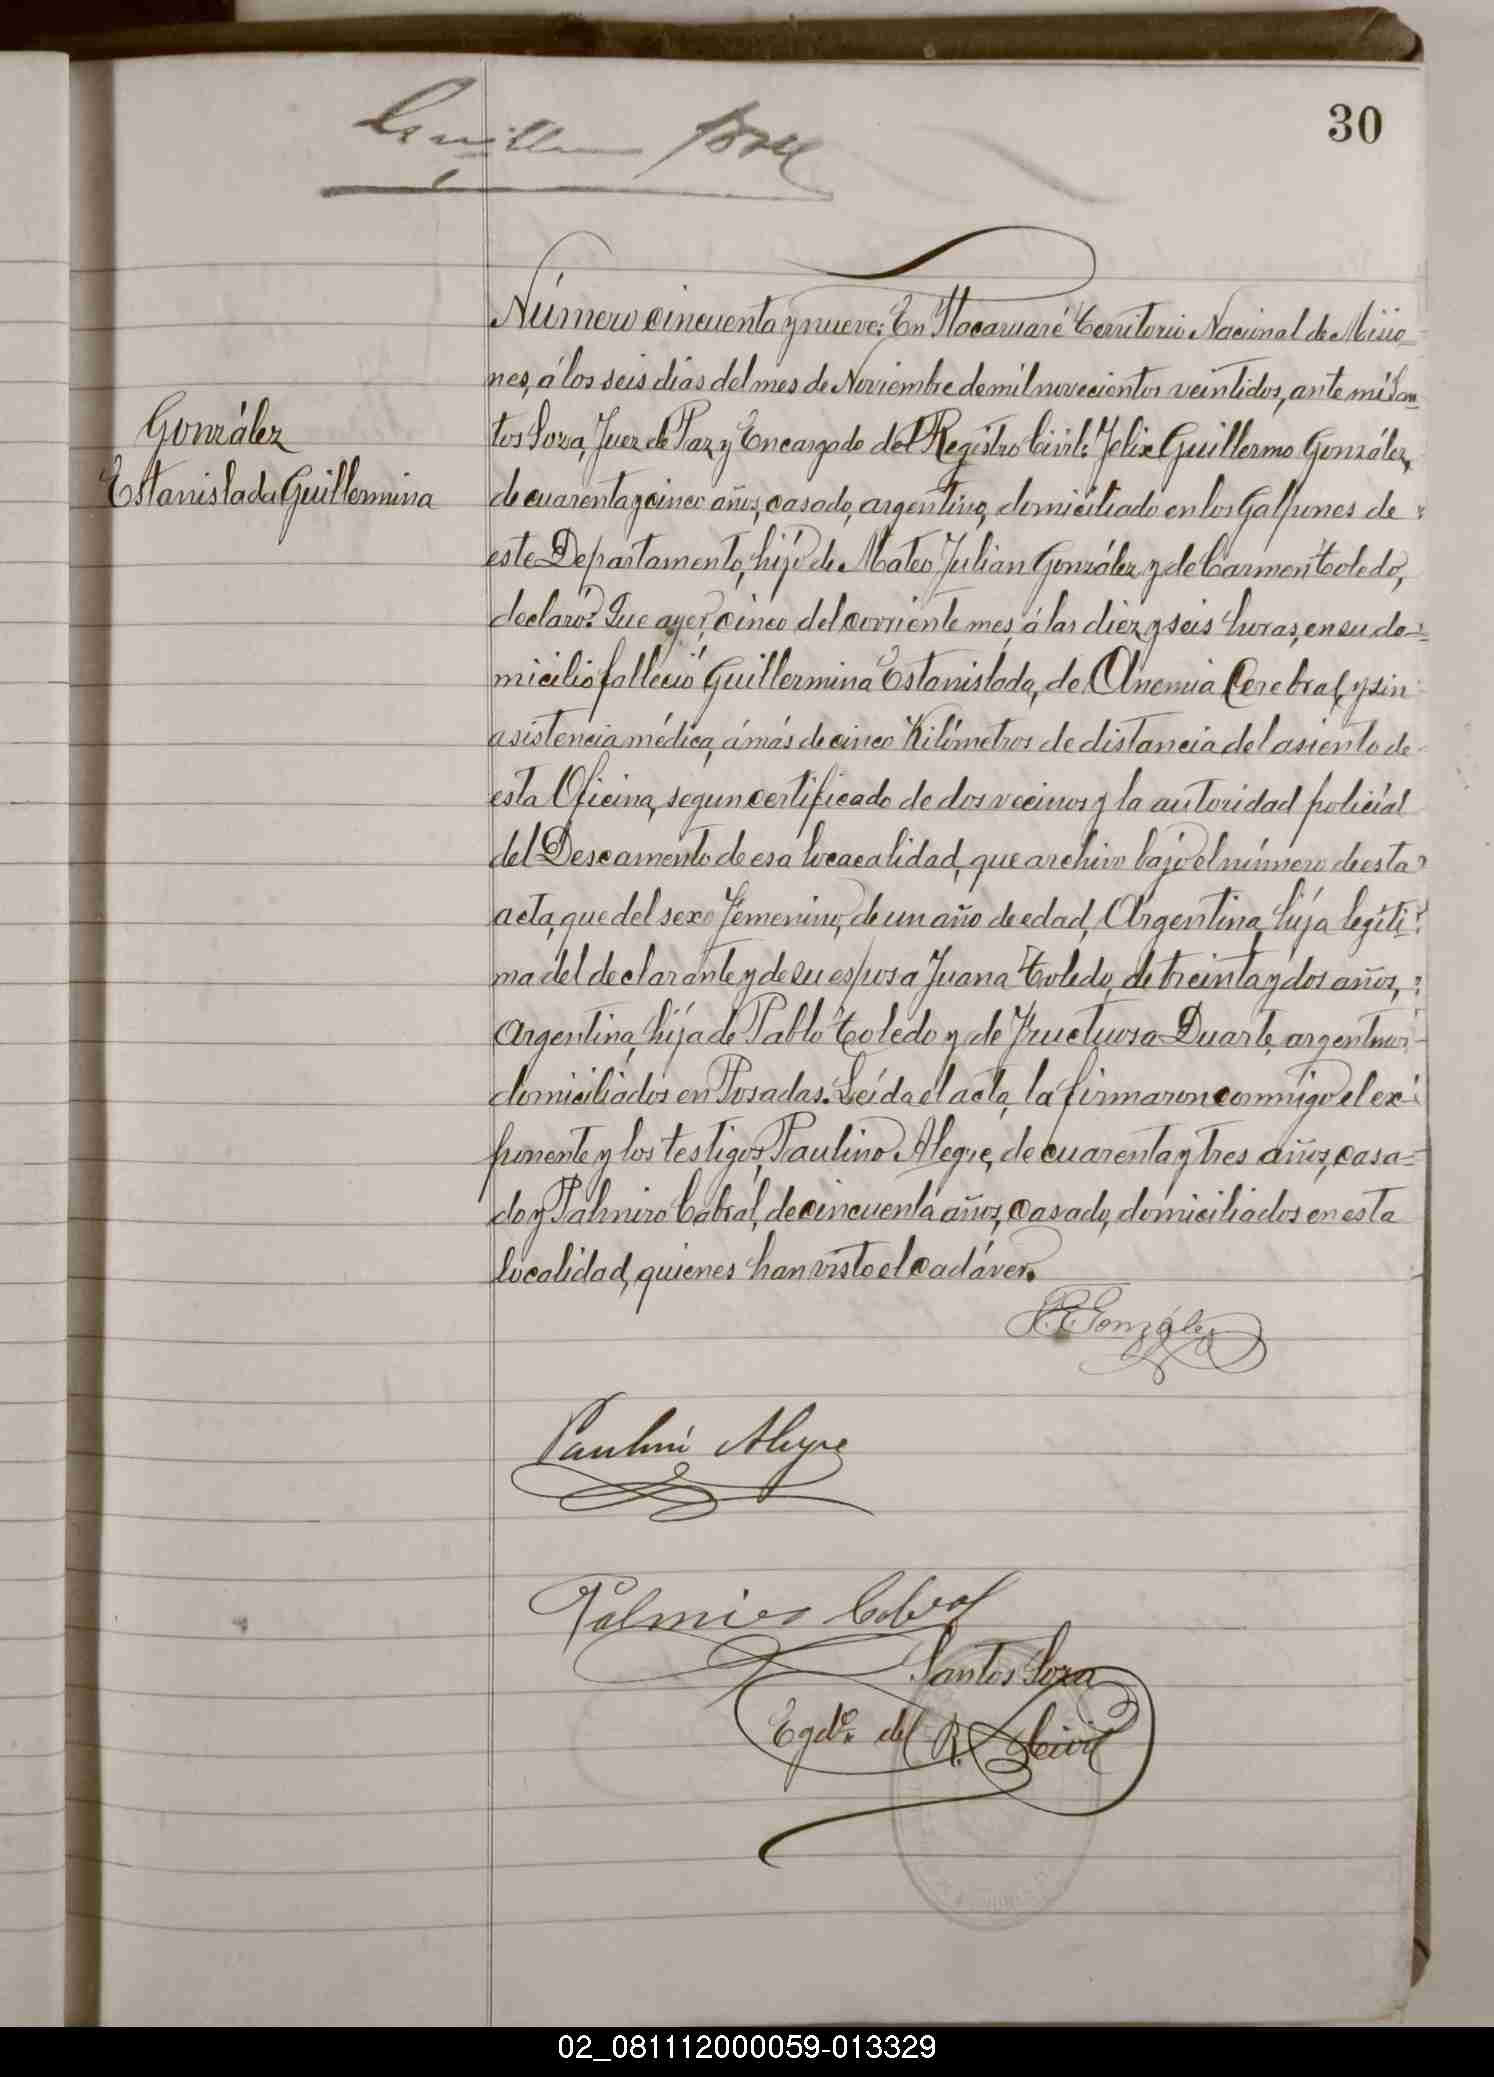 30
Número cincuenta y nueve: En Itacaruaré Territorio Nacional de Misio-
nes, á los seis dias del mes de Noviembre de mil novecientos veintidos, ante mí San-
tos Soza, Juez de Paz y Encargado del Registro Civil: Felix Guillermo González,
de cuarenta y cinco años, casado, argentino, domiciliado en los Galpones de
este Departamento, hijo de Mateo Julian González y de Carmen Toledo,
declaró: Que ayer, cinco del corriente mes, á las diez y seis horas, en su do-
micilio falleció Guillermina Estanislada, de Anemia Cerebral, y sin
asistencia médica, á más de cinco Kilómetros de distancia del asiento de
esta Oficina, segun certificado de dos vecinos y la autoridad policial
del Descamento de esa locacalidad, que archivo bajo el número de esta
acta, que del sexo Femenino, de un año de edad, Argentina, hija legíti-
ma del declarante y de su esposa Juana Toledo, de treinta y dos años,
Argentina, hija de Pablo Toledo y de Fructuosa Duarte, argentinos
domiciliados en Posadas. Leída el acta, la firmaron conmigo el ex-
ponente y los testigos, Paulino Alegre, de cuarenta y tres años, casa-
do y Palmiro Cabral, de cincuenta años, casado, domiciliados en esta
localidad, quienes han visto el cadáver.
González
Estanislada Guillermina
González
Paulino Alegre
Palmiro Cabral
Santos Soza
Egdo. del R. Civil
02_081112000059-013329